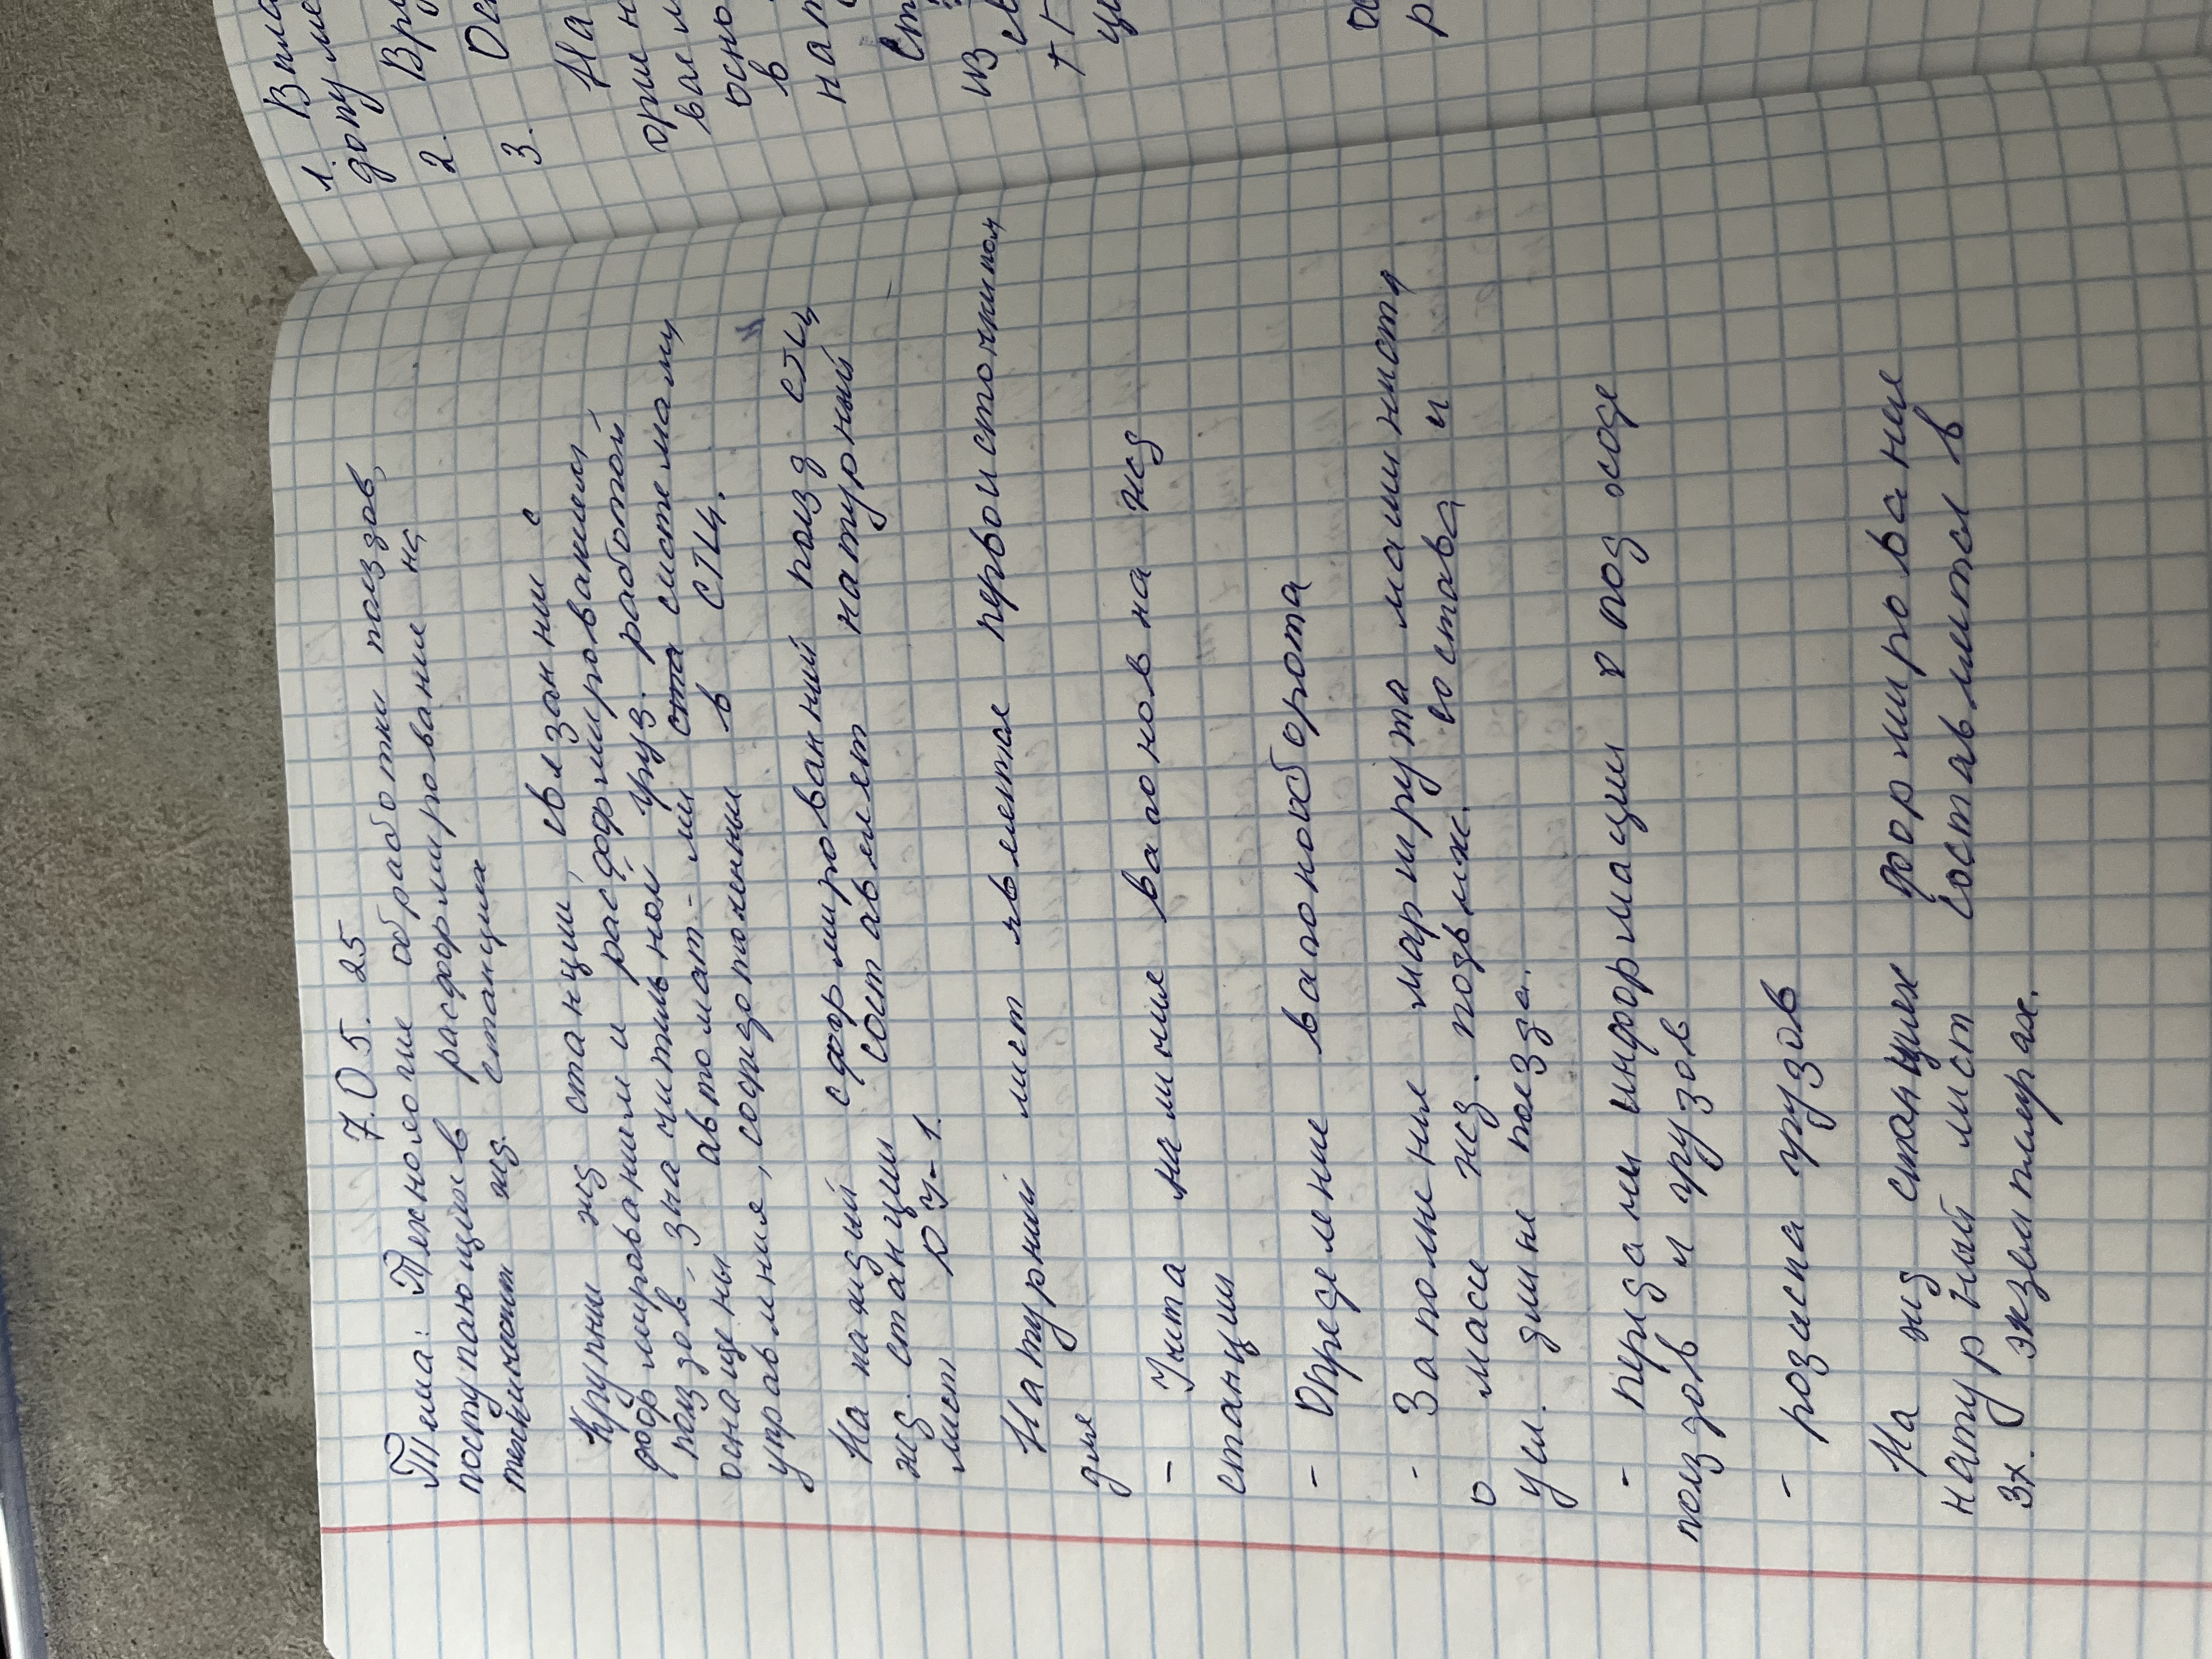 7.05.25
Тема: Технология обработки поездов,
поступающих в расформирование на
технической жд. станциях
Крупни жд станции, связанни с
формированием и расформированием
поездов, значительной груз. работой
оснащены автомат-ми ста системами
управления, сосредоточенны в СТЦ.
На каждый сформированний поезд СТЦ
жд. станции составляет натурный
лист ДУ-1.
Натурний лист является первоисточником
для
- Учета наличие вагонов на жд
станции
- Определение вагонооборота
- Заполнение маршрута машиниста
о массе жд. подвиж. состава и
усл. длине поезда.
- передачи информации о подходе
поездов и грузов
- розыска грузов
На жд станциях формирование
натурный лист составляется в
3х. экземплярах.
1. В
2.
3.
На
осно
в